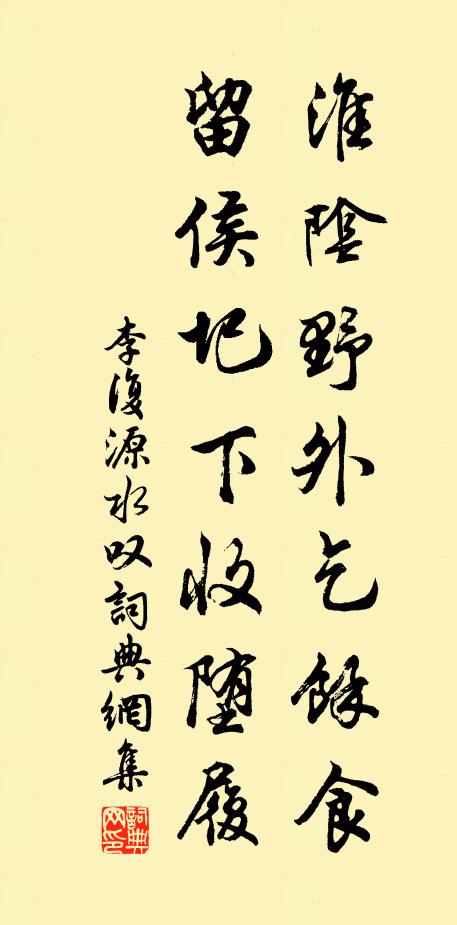 淮陰野外乞餘食
留侯圯下收堕履
李復源水叹詞典網集
詞典网印